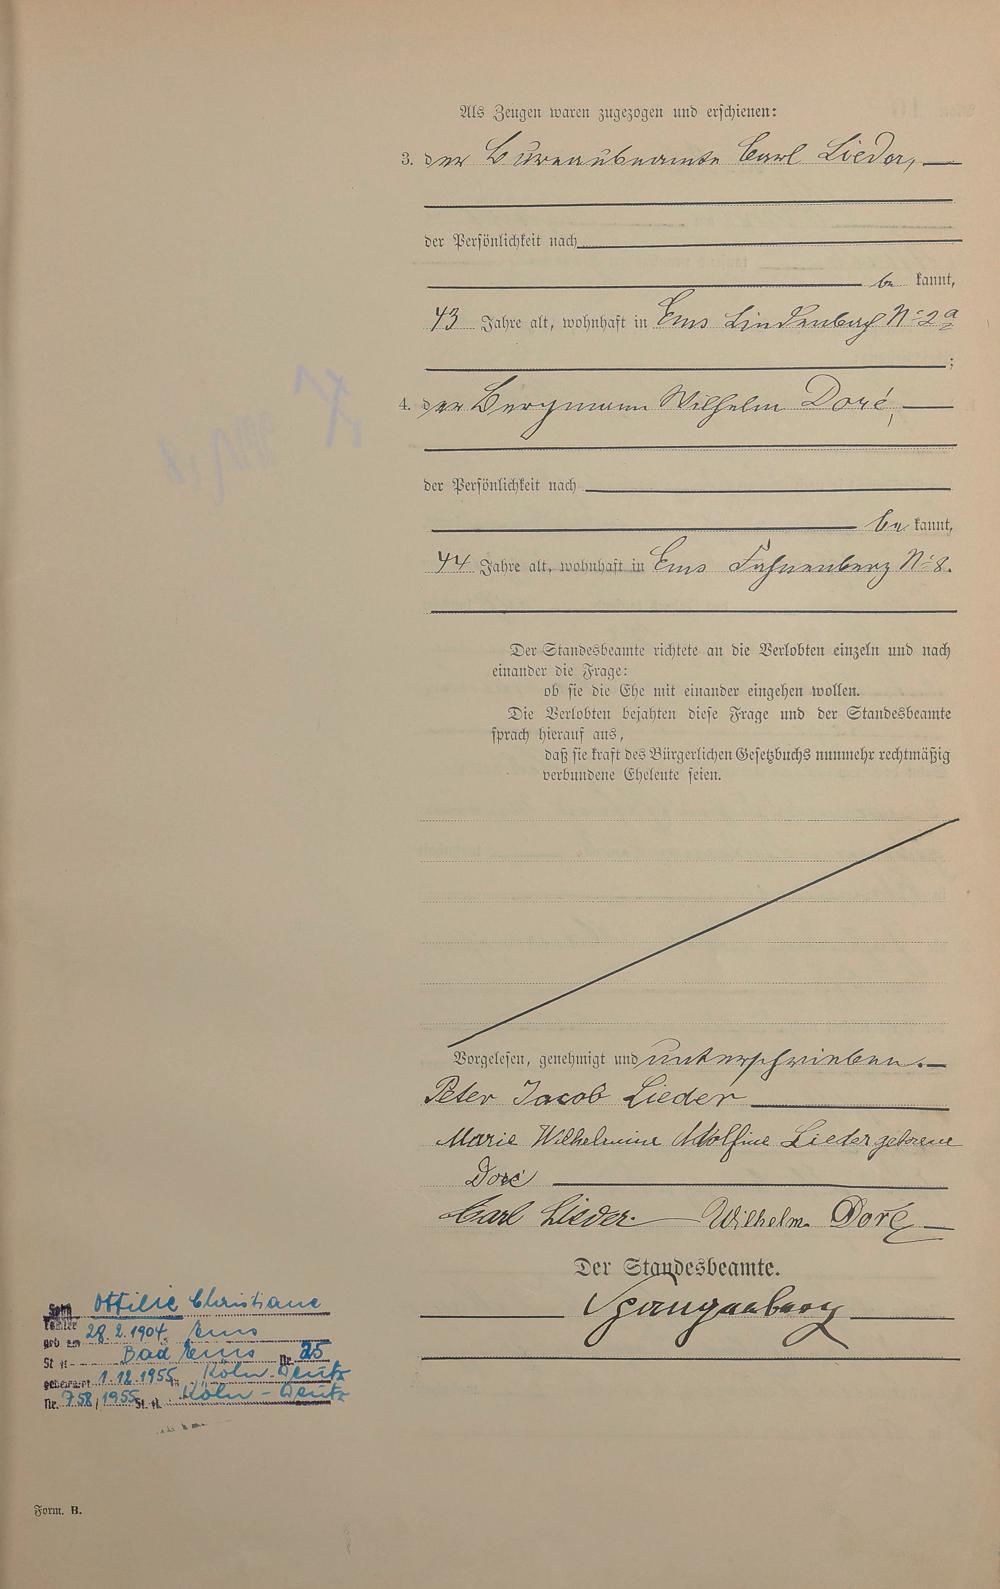 Als Zeugen waren zugezogen und erschienen:
3. der Bureaubeamte Carl Lieder,
der Persönlichkeit nach
be kannt,
43 Jahre alt, wohnhaft in Ems Lindenbach No 2a
;
4. der Bergmann Wilhelm Doré,
der Persönlichkeit nach
be kannt,
44 Jahre alt, wohnhaft in Ems Fahnenberg No 8.
Der Standesbeamte richtete an die Verlobten einzeln und nach
einander die Frage:
ob sie die Ehe mit einander eingehen wollen.
Die Verlobten bejahten diese Frage und der Standesbeamte
sprach hierauf aus,
daß sie kraft des Bürgerlichen Gesetzbuchs nunmehr rechtmäßig
verbundene Eheleute seien.
Vorgelesen, genehmigt und unterschrieben.
Peter Jacob Lieder
Marie Wilhelmine Adolfine Lieder geborene
Doré
Carl Lieder. Wilhelm Doré
Der Standesbeamte.
Spangenberg
Sohn Ottilie Christiane
Tochter
geb am 28.2.1904, Ems
St A Bad Ems Nr. 25
geheiratet 1.12.1955 in Köln-Deutz
Nr. 758/1955 St. A. Köln-Deutz
Form. B.